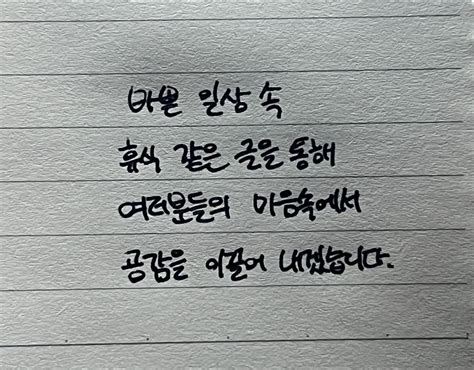 바쁜 일상 속
휴식 같은 글을 통해
여러분들의 마음속에서
공감을 이끌어 내겠습니다.